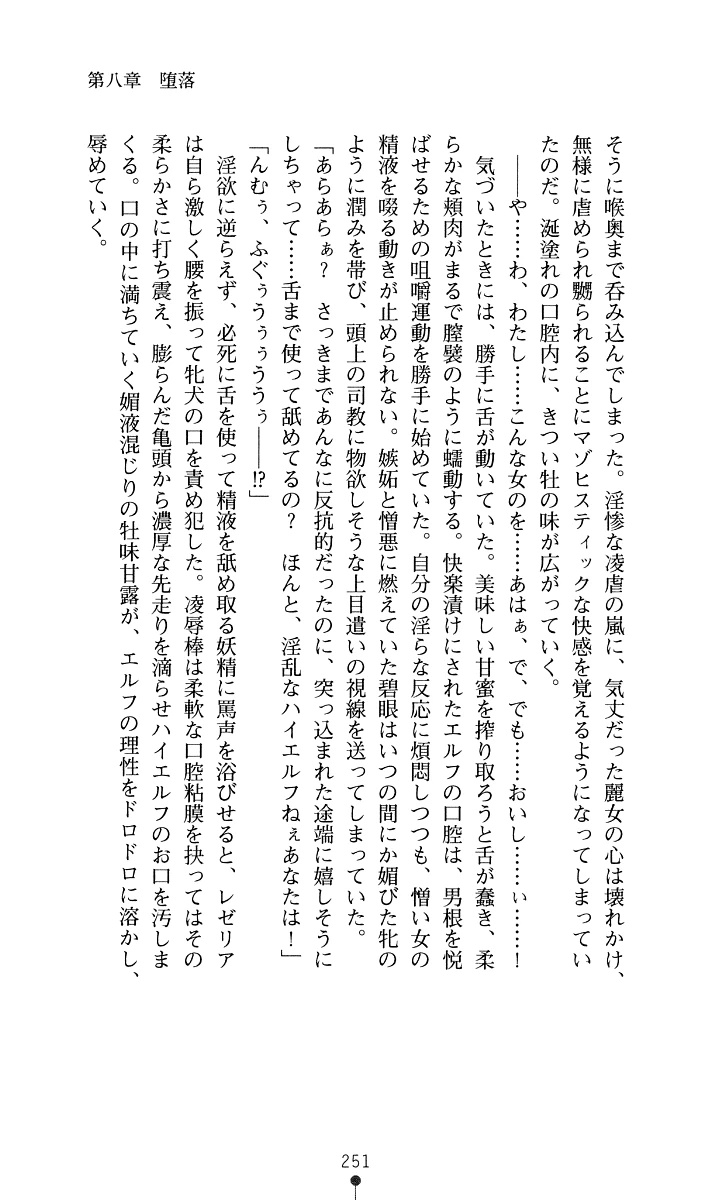 第八章　堕落
そうに喉奥まで呑み込んでしまった。淫惨な凌虐の嵐に、気丈だった麗女の心は壊れかけ、
無様に虐められ嬲られることにマゾヒスティックな快感を覚えるようになってしまってい
たのだ。涎塗れの口腔内に、きつい牡の味が広がっていく。
――や……わ、わたし……こんな女のを……あはぁ、で、でも……おいし……ぃ……！
気づいたときには、勝手に舌が動いていた。美味しい甘蜜を搾り取ろうと舌が蠢き、柔
らかな頬肉がまるで膣襞のように蠕動する。快楽漬けにされたエルフの口腔は、男根を悦
ばせるための咀嚼運動を勝手に始めていた。自分の淫らな反応に煩悶しつつも、憎い女の
精液を啜る動きが止められない。嫉妬と憎悪に燃えていた碧眼はいつの間にか媚びた牝の
ように潤みを帯び、頭上の司教に物欲しそうな上目遣いの視線を送ってしまっていた。
「あらあらぁ？　さっきまであんなに反抗的だったのに、突っ込まれた途端に嬉しそうに
しちゃって……舌まで使って舐めてるの？　ほんと、淫乱なハイエルフねぇあなたは！」
「んむぅ、ふぐぅうぅぅううぅ――!?」
淫欲に逆らえず、必死に舌を使って精液を舐め取る妖精に罵声を浴びせると、レゼリア
は自ら激しく腰を振って牝犬の口を責め犯した。凌辱棒は柔軟な口腔粘膜を抉ってはその
柔らかさに打ち震え、膨らんだ亀頭から濃厚な先走りを滴らせハイエルフのお口を汚しま
くる。口の中に満ちていく媚液混じりの牡味甘露が、エルフの理性をドロドロに溶かし、
辱めていく。
251